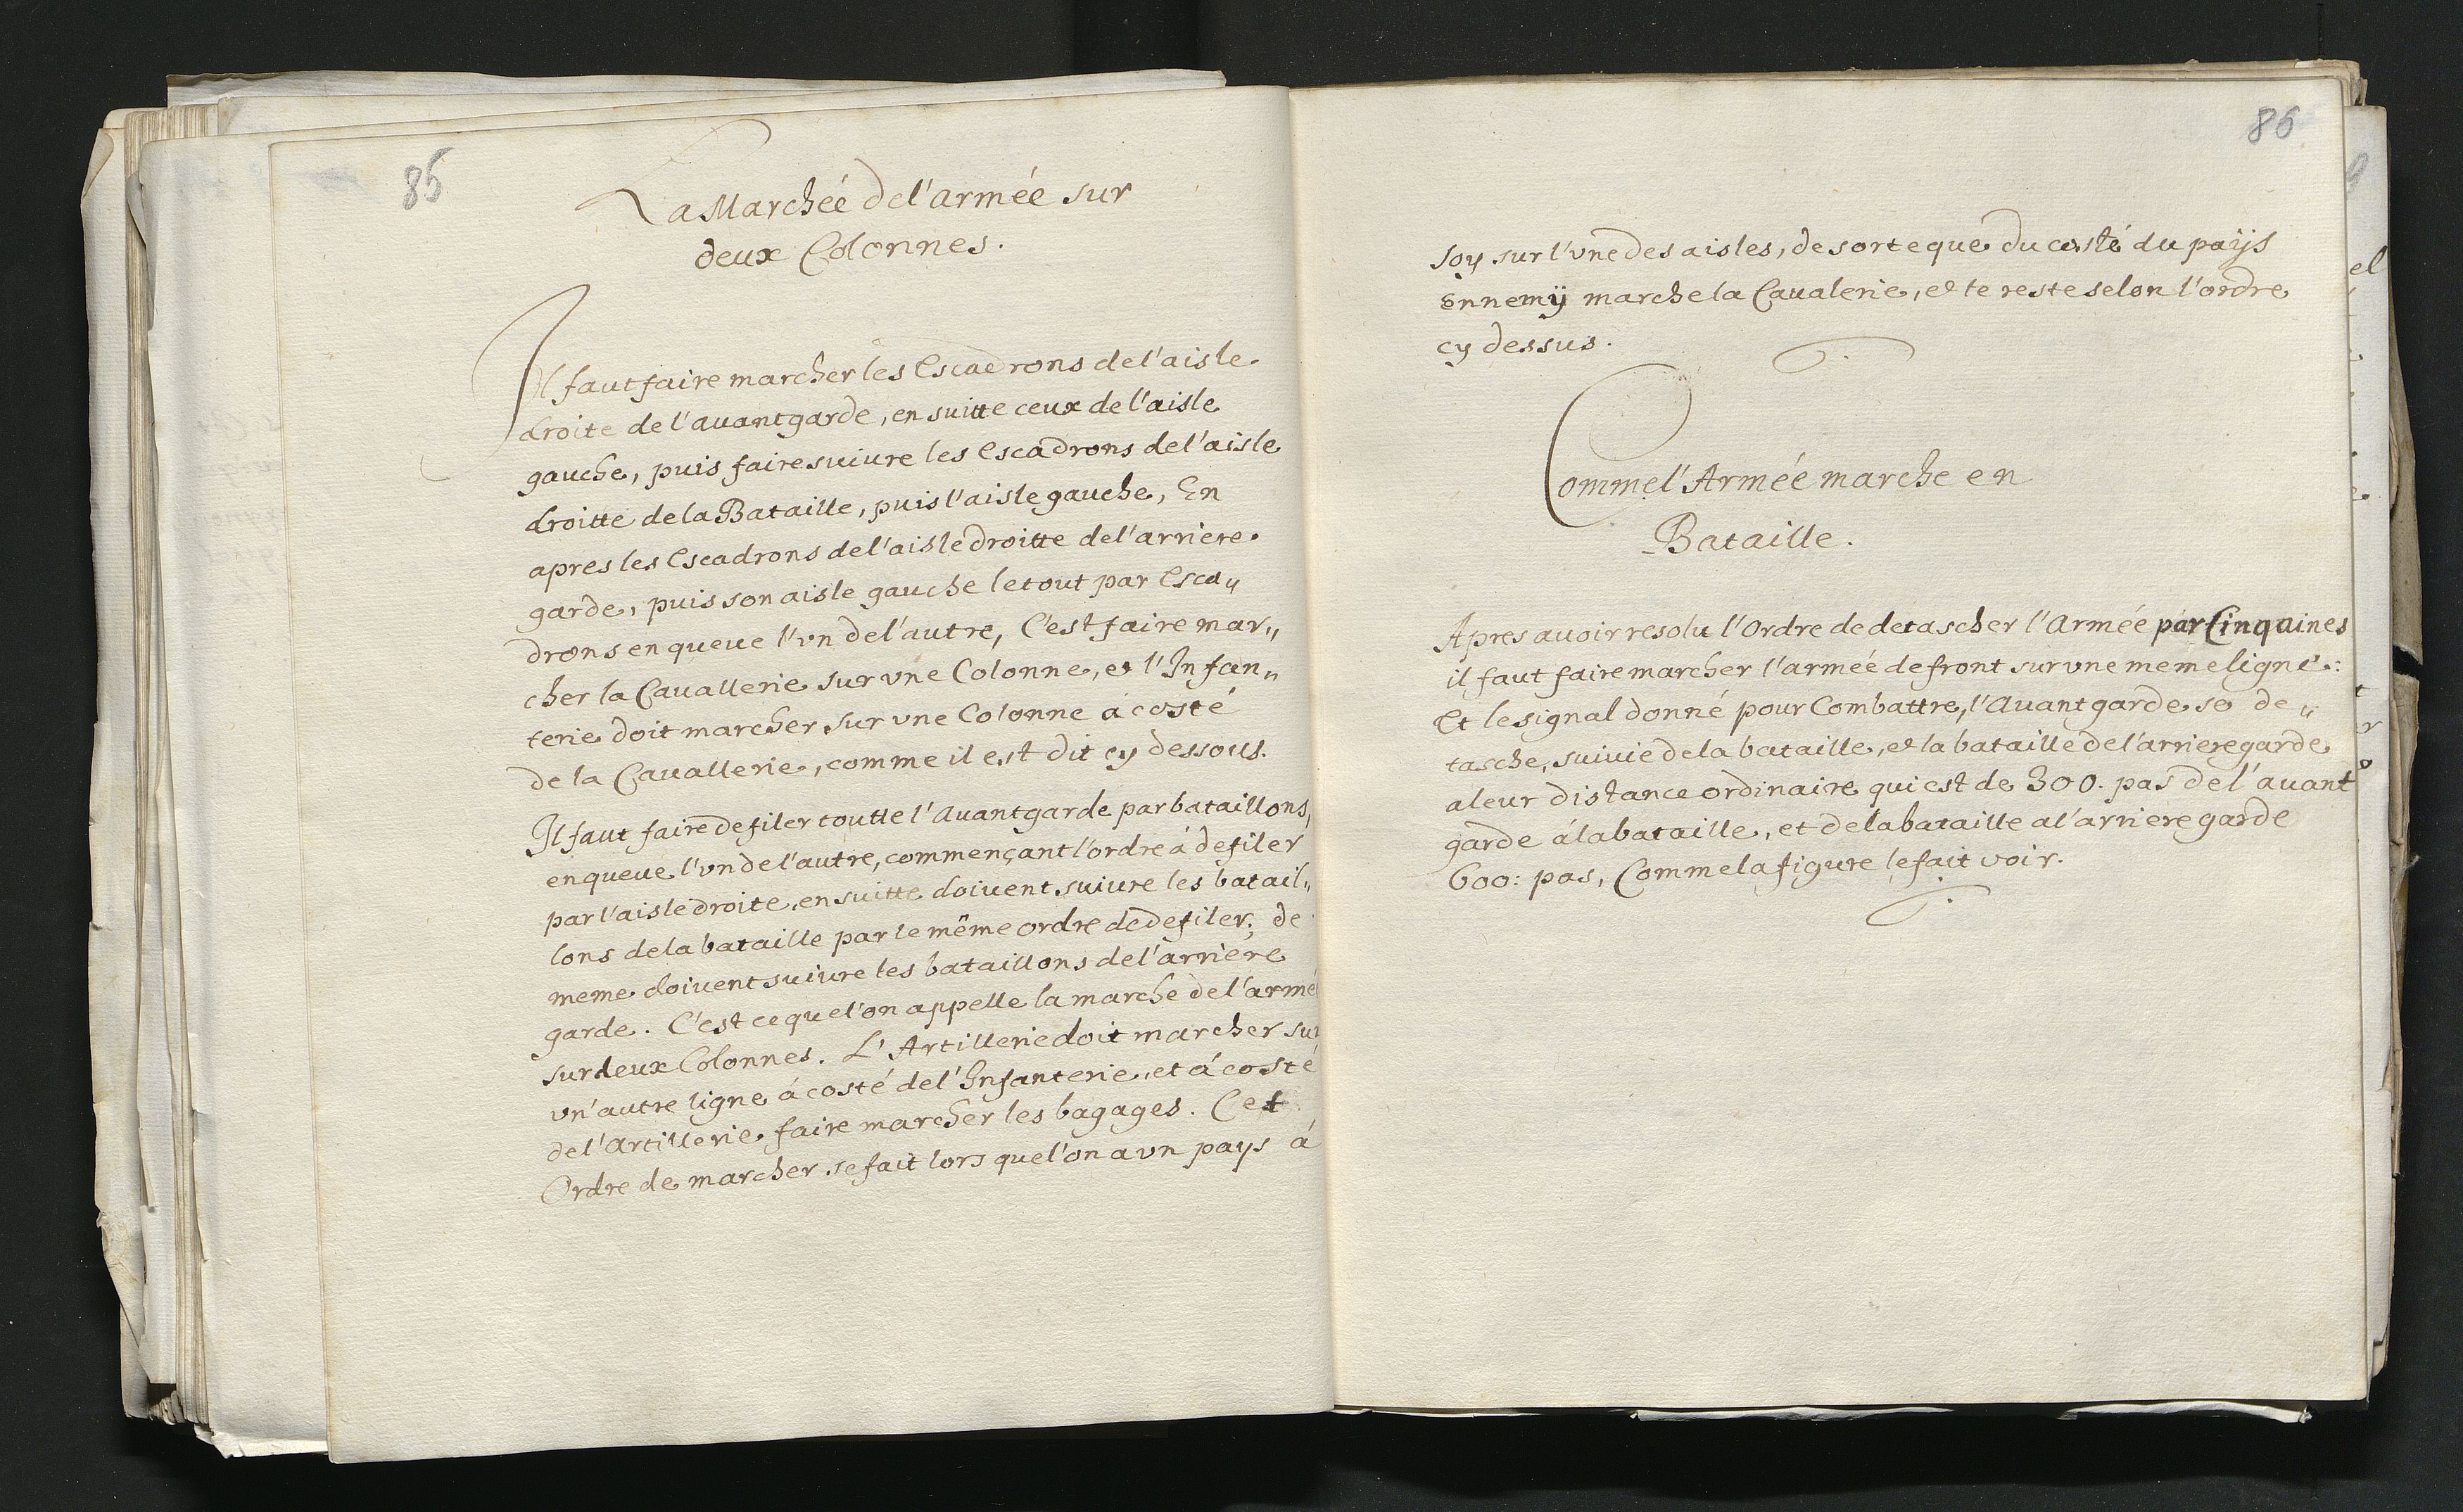 85
La Marchéé del'armée sur
deux Colonnes.
Il faut faire marcher les Escadrons del'aisle
droite de l'auantgarde, en suitte ceux de l'aisle
gauche, puis faire suiure les Escadrons del'aisle
droitte de la Bataille, puis l'aisle gauche, En
apres les Escadrons de l'aisle droitte de l'arriere
garde, puis son aisle gauche le tout par Esca„
drons en queue l'vn de l'autre, C'est faire mar„
cher la Cauallerie sur vne Colonne, et l'Infan„
terie doit marcher sur vne Colonne á costé
de la Cauallerie, comme il est dit cy dessous.
Il faut faire defiler toutte l'Auantgarde par bataillons,
en queue l'vn de l'autre, commençant l'ordre á defiler
par l'aisle droite, en suitte doiuent suiure les batail„
lons de la bataille par le même ordre de defiler; de
meme doiuent suiure les bataillons de l'arriere
garde. C'est ce que l'on appelle la marche de l'armé
sur deux Colonnes. L'Artillerie doit marcher sur
vn'autre ligne á costé de l'Infanterie, et á costé
de l'Artillerie faire marcher les bagages. Cet
Ordre de marcher se fait lors que l'on a vn pays á
86
soy sur l'vne des aisles, de sorte que du costé du paÿs
Ennemÿ marche la Caualerie, et le reste selon l'ordre
cy dessus.
Comme l'Armée marche en
Bataille.
Apres auoir resolu l'Ordre de detascher l'Armée par Cinqaines
il faut faire marcher l'armée de front sur vne meme ligne:
Et le signal donné pour Combattre, l'Auantgarde se de„
tasche, suiuie de la bataille, et la bataille de l'arrieregarde
a leur distance ordinaire qui est de 300. pas de l'auant
garde á la bataille, et de la bataille a l'arrieregarde
600: pas, Comme la figure le fait voir.